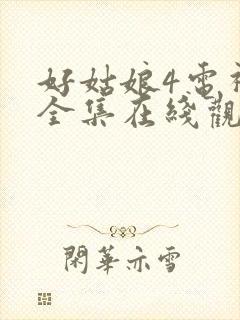 好姑娘4电视
全集在线觀
閑華亦雪